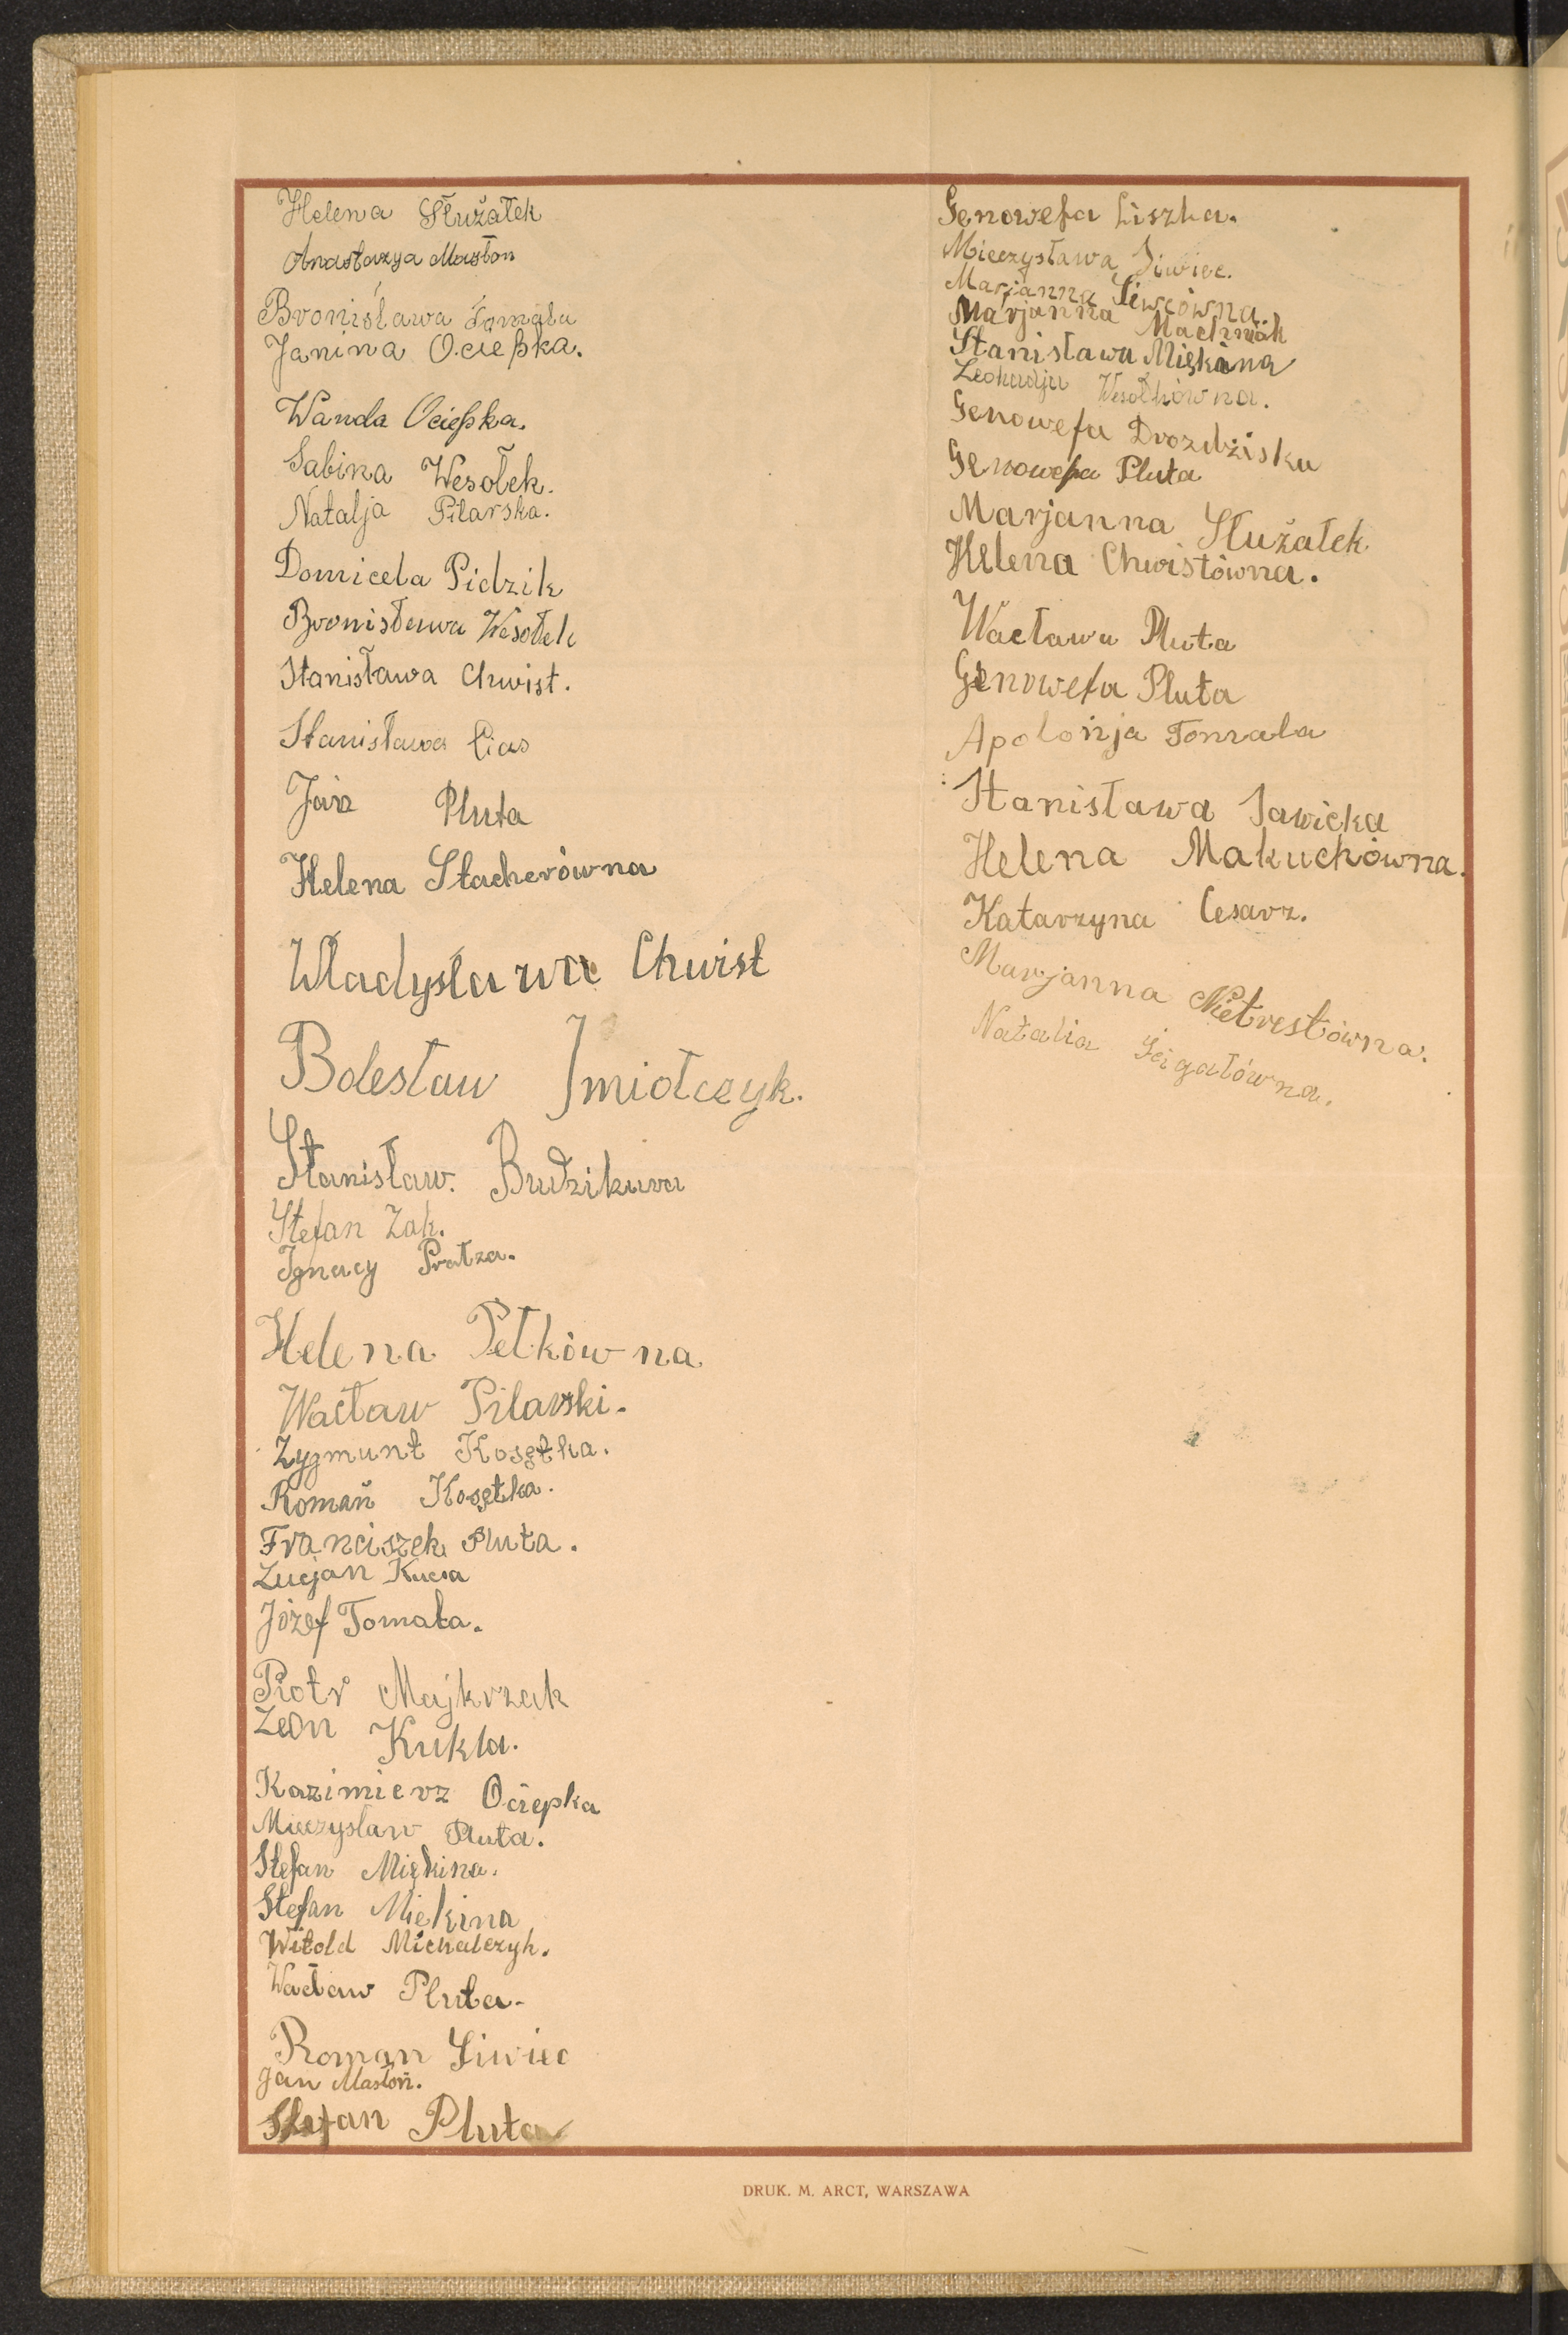 Helena Służałek
Anastazya Mastoń
Bronisława Tomala
Janina Ociepka.
Wanda Ociepka.
Sabina Wesołek.
Natalja Pilarska.
Domicela Pidzik
Bronisława Wesołek
Stanisława Chwist.
Stanisława Cias
Jan Pluta
Helena Stacherówna
Władysława Chwist
Bolesław Imiołczyk.
Stanisław. Budzikura
Stefan Żak.
Ignacy Pratza.
Helena Petkówna
Wacław Pilarski.
Zygmunt Kosętka.
Roman Kosętka.
Franciszek Pluta.
Lucjan Kucia
Józef Tomala.
Piotr Majkrzak
Leon Kukla.
Kazimierz Ociepka
Mieczysław Pluta.
Stefan Miękina.
Stefan Miękina
Witold Michalczyk.
Wacław Pluta.
Roman Siwiec
Jan Mastoń.
Stefan Pluta
Genowefa Liszka.
Mieczysława Siwiec.
Marjanna Siwcówna.
Marjanna Machniak
Stanisława Miękina
Leokadja Wesołkówna.
Genowefa Drozdziska
Genowefa Pluta
Marjanna Służałek
Helena Chwistówna.
Wacława Pluta
Genowefa Pluta
Apolonja Tomala
Stanisława Sawicka
Helena Makuchówna.
Katarzyna Cesarz.
Marjanna Nietrestówna.
Natalia Gigałówna.
DRUK. M. ARCT, WARSZAWA